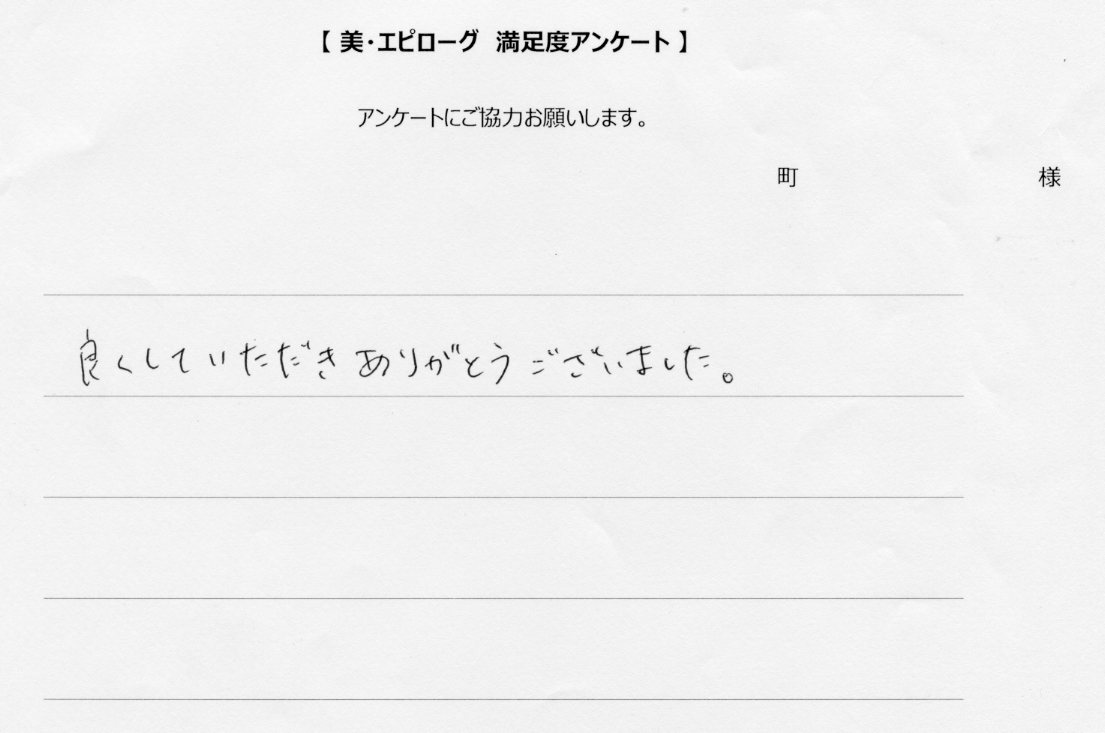 【 美・エピローグ 満足度アンケート 】
アンケートにご協力お願いします。
町 様
良くしていただきありがとうございました。